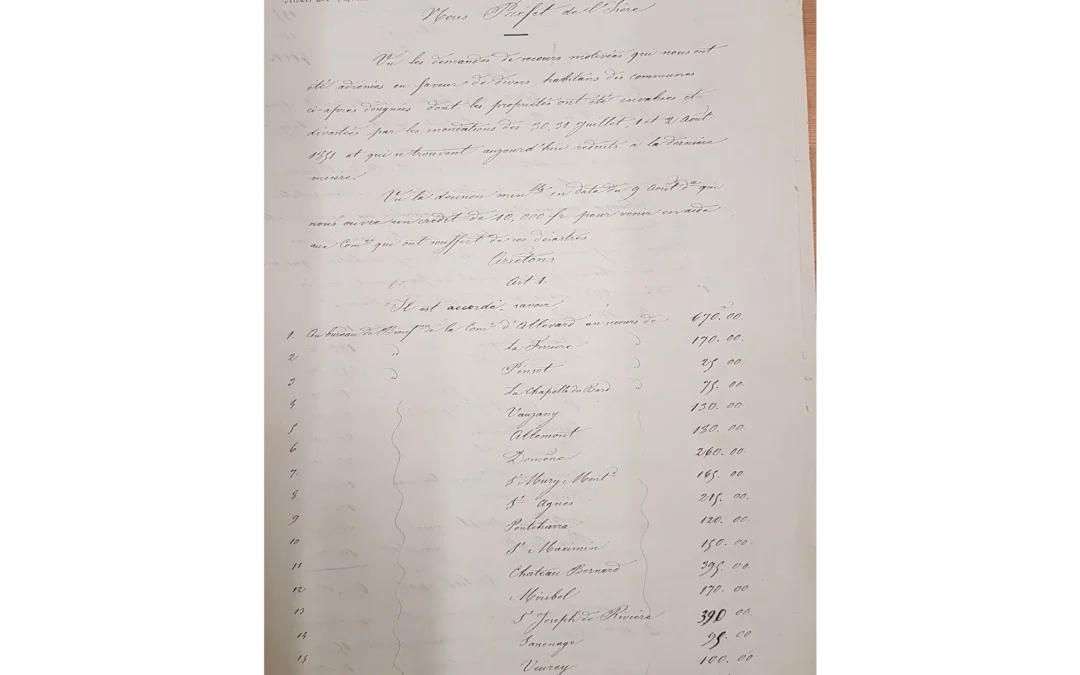 Nous Préfet de l'Isère
Vu les demandes de secours motivées qui nous ont
été adressées en faveur de divers habitans des communes
ci-après désignées dont les propriétés ont été envahies et
dévastées par les inondations des 30, 31 Juillet, 1 et 2 Août
1851 et qui se trouvent aujourd'hui réduits à la dernière
misère.
Vu la décision min.lle en date du 9 Août dr qui
nous ouvre un crédit de 10,000 fr pour venir en aide
aux Com.es qui ont souffert de ces désastres
Arrêtons
Art 1.
Il est accordé, savoir
1. Au bureau de Bienf.ce de la Com.e d'Allevard un secours de 670.00.
2 " La Ferrière " 170.00.
3 " Pinsot " 25.00
4 La Chapelle du Bard 75.00
Vaujany 130.00
5 Allemont 130.00.
6 Domène 260.00
7. St Mury Mont. 165.00.
8 Ste Agnès 215.00.
9 Pontcharra 120.00.
10 St Maximin 150.00.
11 Chateau Bernard 395.00
12 Miribel 170.00
13 St Joseph de Rivière 390 00.
14 Sassenage 95.00
15 Veurey 100.00